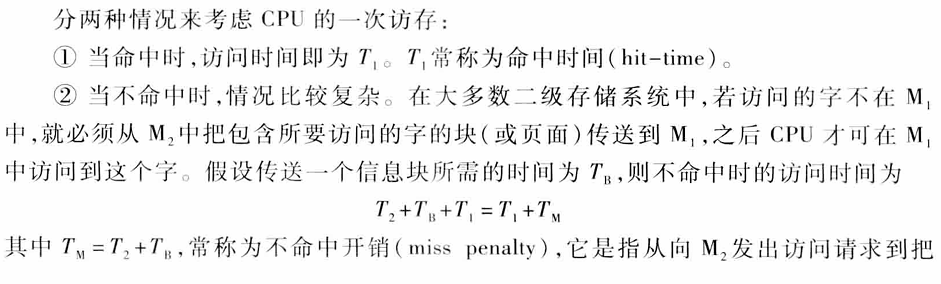 分两种情况来考虑 CPU 的一次访存：
① 当命中时，访问时间即为 T₁。T₁常称为命中时间（hit-time）。
② 当不命中时，情况比较复杂。在大多数二级存储系统中，若访问的字不在 M₁
中，就必须从 M₂中把包含所要访问的字的块（或页面）传送到 M₁，之后 CPU 才可在 M₁
中访问到这个字。假设传送一个信息块所需的时间为 T_B，则不命中时的访问时间为
T₂+T_B+T₁=T₁+T_M
其中 T_M=T₂+T_B，常称为不命中开销（miss penalty），它是指从向 M₂发出访问请求到把